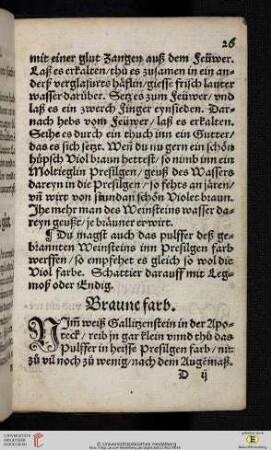 26
mit einer glut Zangen auß dem Feüwer.
Laß es erkalten/thů es zusamen in ein an-
derß verglasurts häflin/giesse frisch lauter
wasser darüber. Setz es zum Feüwer/vnd
laß es ein zwerch Finger eynsieden. Dar-
nach hebs vom Feüwer/laß es erkalten.
Seihe es durch ein thuch inn ein Gutter/
das es sich setzt. Weñ du nu gern ein schön
hüpsch Viol braun hettest/so nimb inn ein
Moltieglin Presilgen/geuß des Wassers
dareyn in die Presilgen/so fehts an jären/
vñ wirt von stundan schön Violet braun.
Ihe mehr man des Weinsteins wasser da-
reyn geußt/je bräuner er wirt.
Du magst auch das pulffer deß ge-
brannten Weinsteins inn Presilgen farb
werffen/so empfehet es gleich so wol die
Viol farbe. Schattier darauff mit Leg-
moß oder Endig.
Braune farb.
NIm̃ weiß Gallitzenstein in der Apo-
teck/reib jn gar klein vnnd thů das
Pulffer in heisse Presilgen farb/nit
zů vil noch zů wenig/nach dem Augēmaß.
D ij
© Universitätsbibliothek Heidelberg